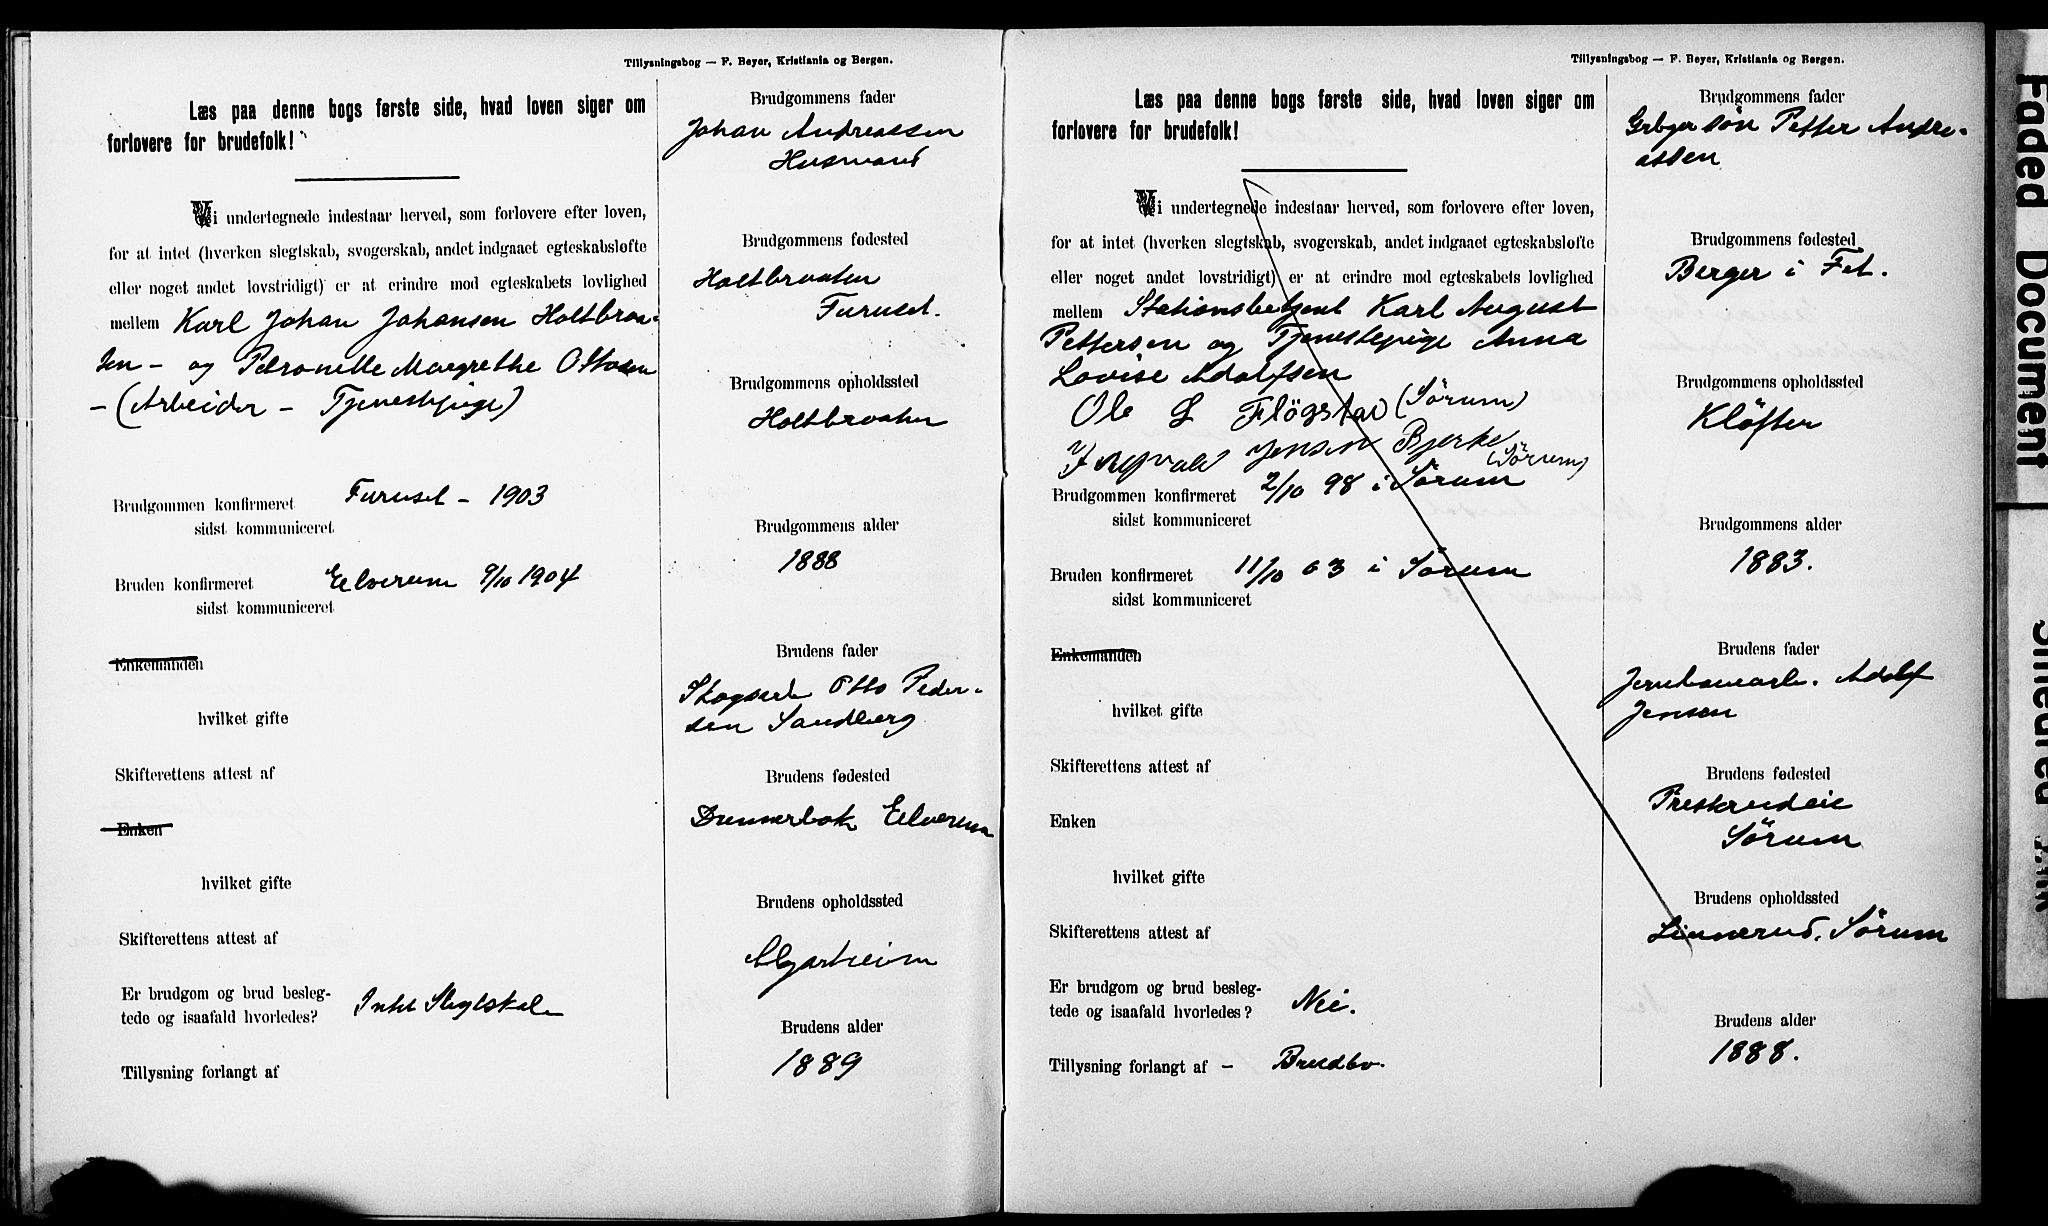 Tillysningsbog — F. Beyer, Kristiania og Bergen.
Læs paa denne bogs første side, hvad loven siger om
forlovere for brudefolk!
Vi undertegnede indestaar herved, som forlovere efter loven,
for at intet (hverken slegtskab, svogerskab, andet indgaaet egteskabsløfte
eller noget andet lovstridigt) er at erindre mod egteskabets lovlighed
mellem Karl Johan Johansen Holtbraa-
ten - og Petronelle Margrethe Ottosen
- (Arbeider - Tjenestepige)
Brudgommen konfirmeret Furuset - 1903
sidst kommuniceret
Bruden konfirmeret Elverum 9/10 1904
sidst kommuniceret
Enkemanden
hvilket gifte
Skifterettens attest af
Enken
hvilket gifte
Skifterettens attest af
Er brudgom og brud besleg-
tede og isaafald hvorledes? Intet Slegtskab
Tillysning forlangt af
Brudgommens fader
Johan Andreassen
Husmand
Brudgommens fødested
Holtbraaten
Furuset.
Brudgommens opholdssted
Holtbraaten
Brudgommens alder
1888
Brudens fader
Skogsarb Otto Peder-
sen Sandberg
Brudens fødested
Elverum
Brudens opholdssted
Brudens alder
1889
Tillysningsbog — F. Beyer, Kristiania og Bergen.
Læs paa denne bogs første side, hvad loven siger om
forlovere for brudefolk!
Vi undertegnede indestaar herved, som forlovere efter loven,
for at intet (hverken slegtskab, svogerskab, andet indgaaet egteskabsløfte
eller noget andet lovstridigt) er at erindre mod egteskabets lovlighed
mellem Stationsbetjent Karl August
Pettersen og Tjenestepige Anna
Lovise Adolfsen
Ole L Flögstad (Sörum)
Jensen Bjerke
(Sörum)
Brudgommen konfirmeret 2/10 98 i Sörum
sidst kommuniceret
Bruden konfirmeret 11/10 03 i Sörum
sidst kommuniceret
Enkemanden
hvilket gifte
Skifterettens attest af
Enken
hvilket gifte
Skifterettens attest af
Er brudgom og brud besleg-
tede og isaafald hvorledes? Nei.
Tillysning forlangt af - Brudbo.
Brudgommens fader
Petter Andre-
assen
Brudgommens fødested
Berger i Fet.
Brudgommens opholdssted
Klöften
Brudgommens alder
1883.
Brudens fader
Jernbanearb. Adolf
Jensen
Brudens fødested
Sörum
Brudens opholdssted
Linnerud, Sörum
Brudens alder
1888.
Faded Document